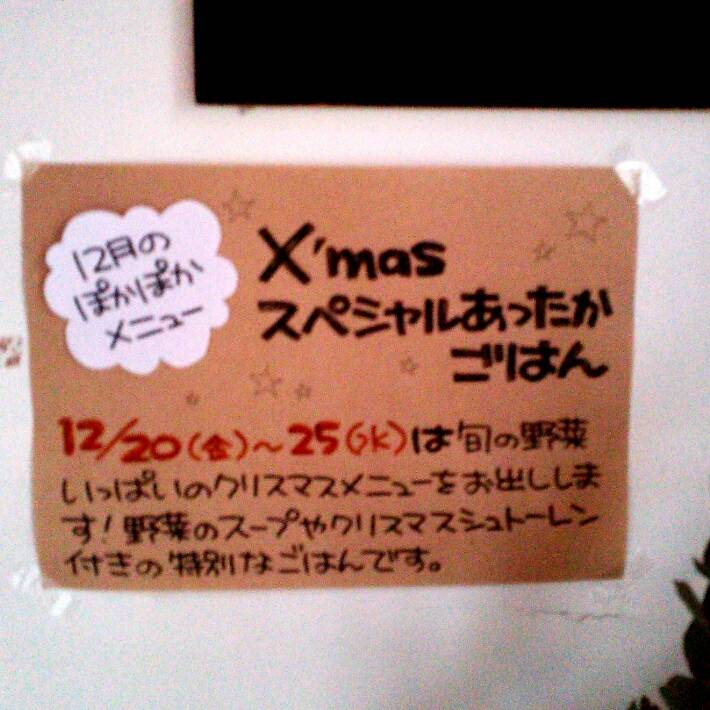 12月の
ぽかぽか
メニュー
X'mas
スペシャルあったか
ごはん
12/20(金)〜25(水)は旬の野菜
いっぱいのクリスマスメニューをお出ししま
す!野菜のスープやクリスマスシュトーレン
付きの特別なごはんです。